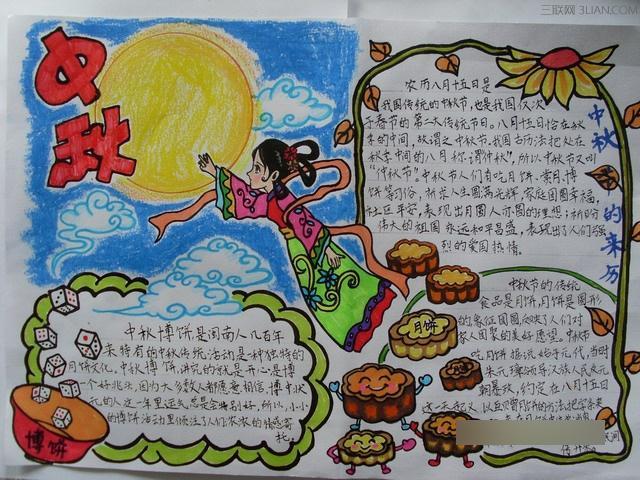 三联网 3LIAN.COM
中秋
中秋的来历
农历八月十五日是
我国传统的中秋节，也是我国仅次
于春节的第二大传统节日。八月十五恰在秋
季的中间，故谓之中秋节。我国古历法把处在
秋季中间的八月称谓"仲秋"，所以中秋节又叫
"仲秋节"。中秋节人们有吃月饼、赏月、博
饼等习俗，祈求人生圆满光辉，家庭团圆幸福，
社区平安，表现出月圆人亦圆的理想；祈盼
伟大的祖国永远和平昌盛，表现出了人们强
烈的爱国热情。
中秋节的传统
食品是月饼，月饼是圆形
的，象征团圆，反映了人们对
家人团聚的美好愿望。中秋节
吃月饼据说始于元代，当时
朱元璋领导汉族人民反元
朝暴政，约定在八月十五日
这一天起义，以互赠月饼的办法把字条夹
月饼
中秋博饼，是闽南人几百年
来特有的中秋传统活动，是一种独特的
月饼文化。中秋博饼，讲究的就是开心，是博
一个好兆头，因为大多数人都愿意相信，博中状
元的人这一年里运气总是会特别好。所以，小小
的博饼活动里倾注了人们浓浓的情感寄
托。
博饼